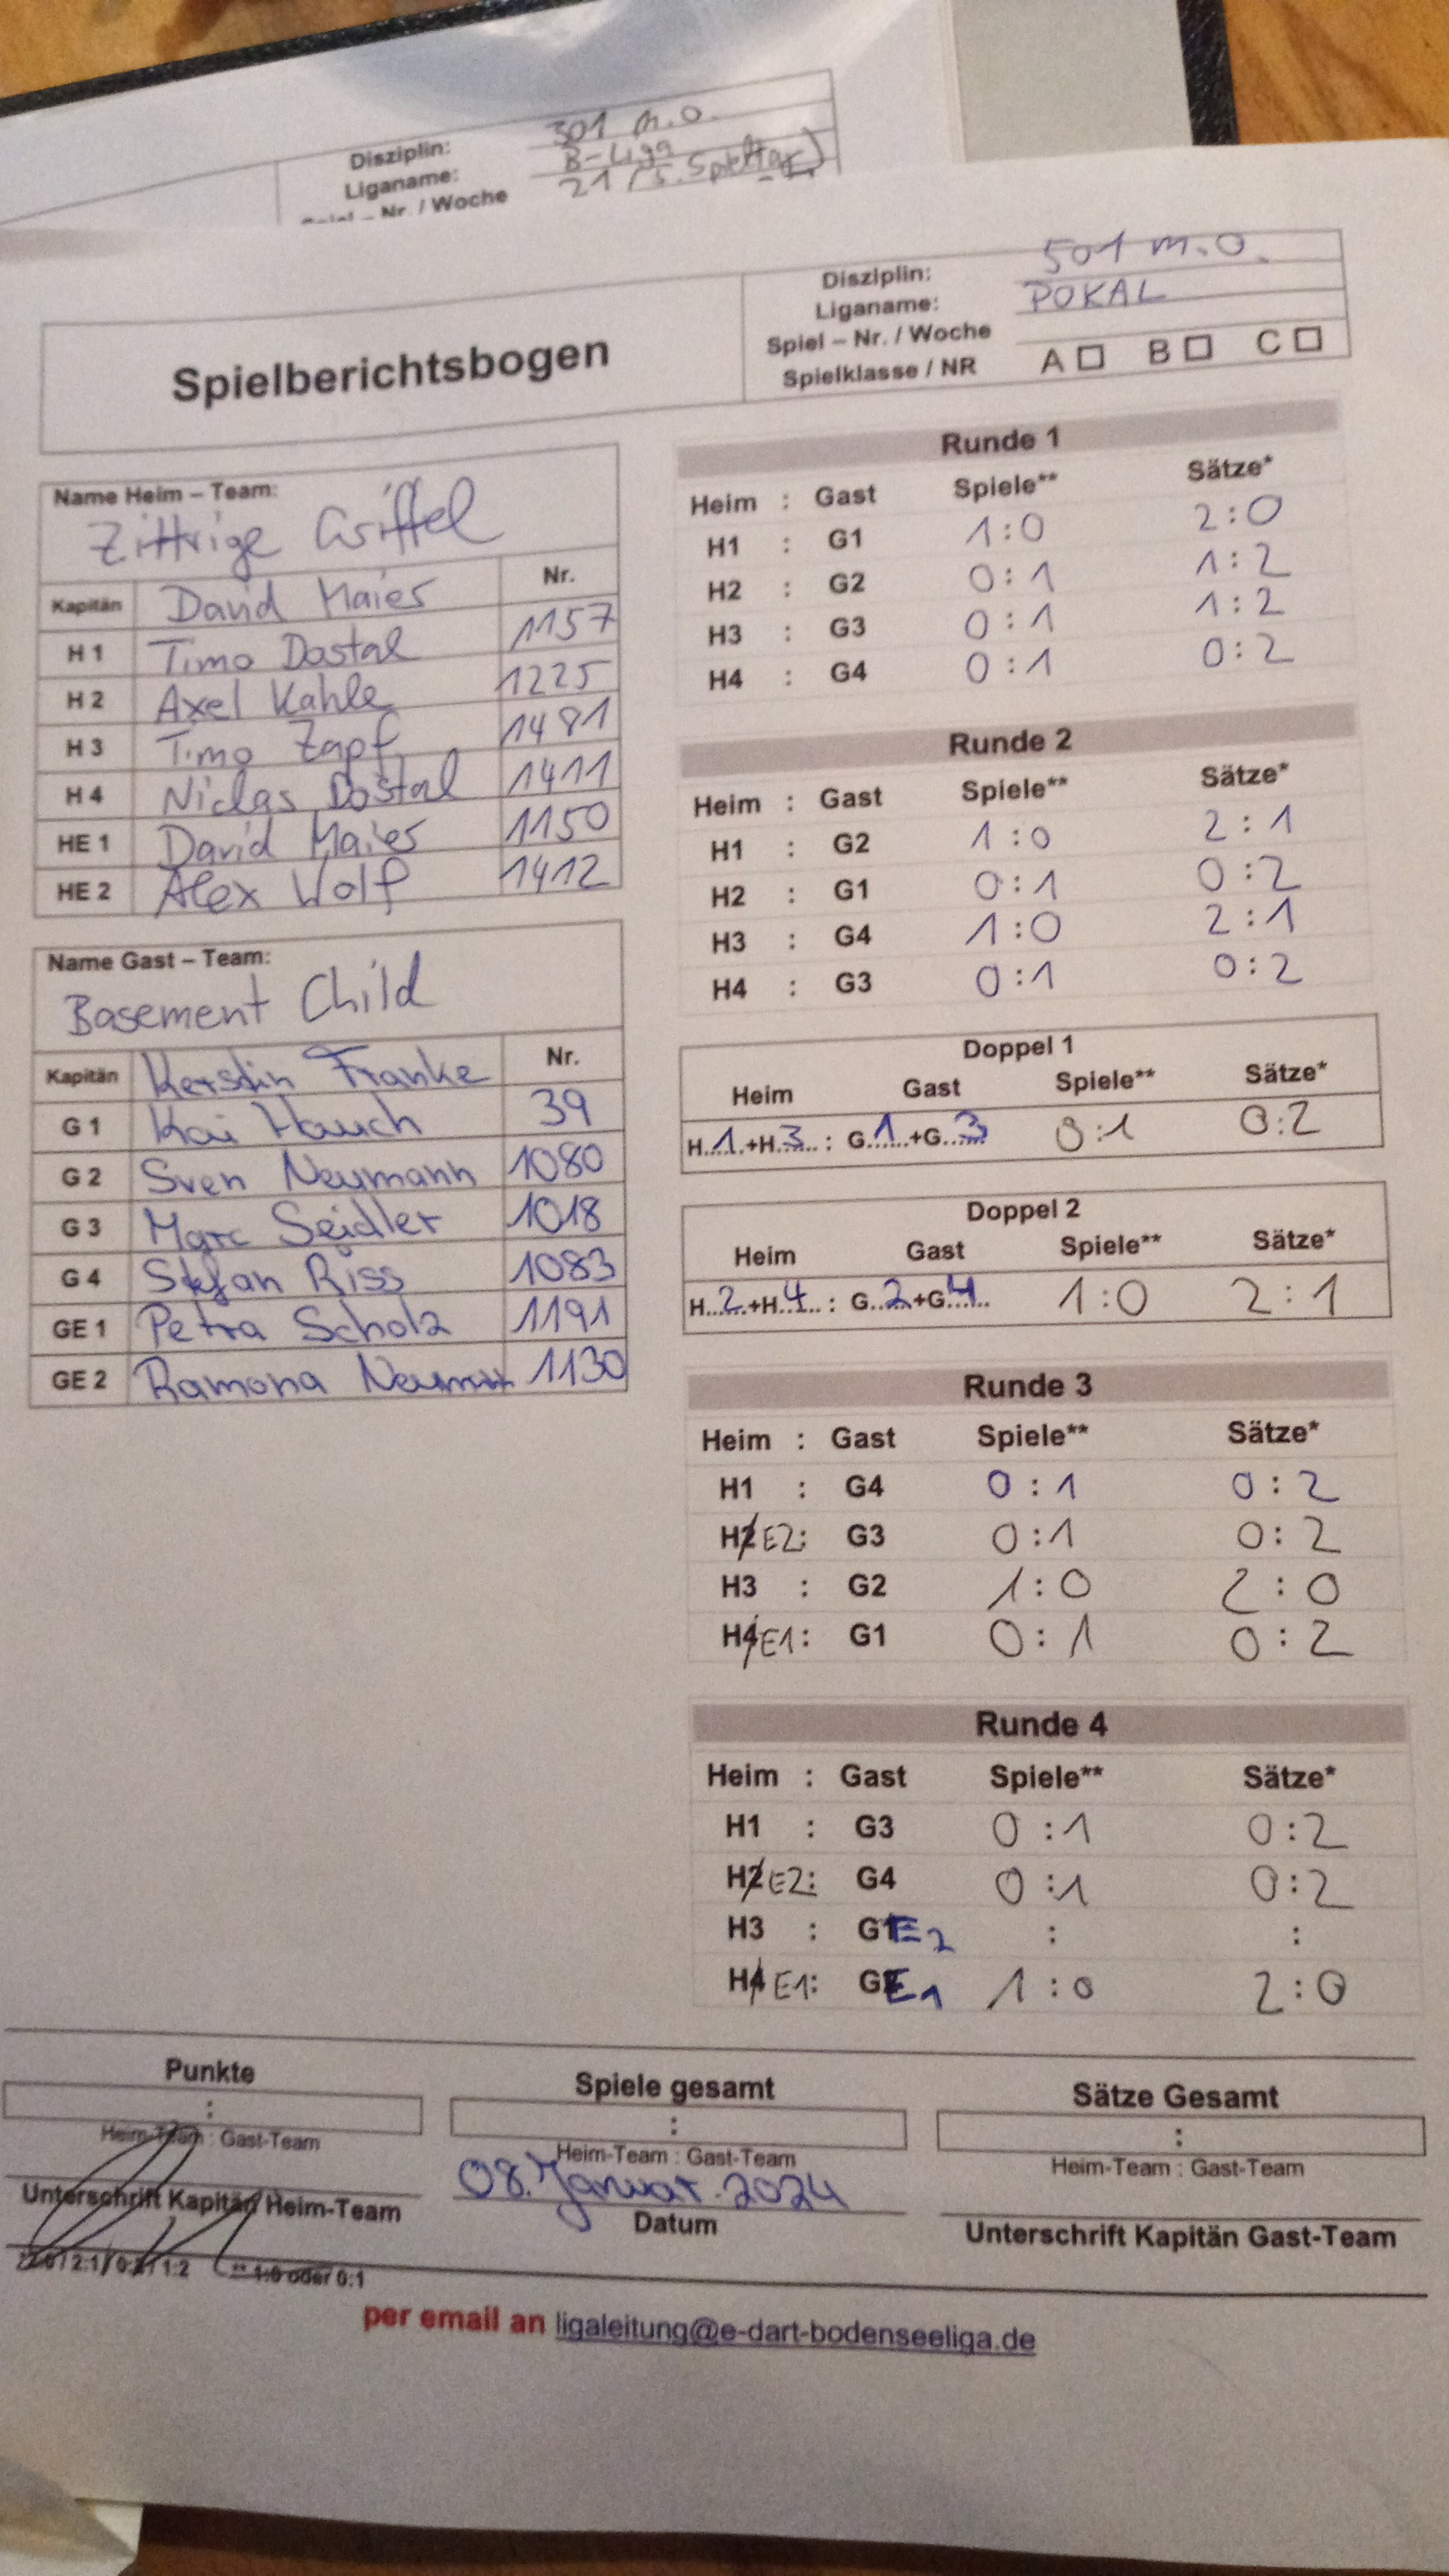 Disziplin: 301 m.O.
Liganame: B-Liga
Nr. / Woche 21 / 5. Spieltag)
Spielberichtsbogen
Disziplin: 501 m.O.
Liganame: POKAL
Spiel – Nr. / Woche
Spielklasse / NR A ☐ B ☐ C ☐
Name Heim – Team:
Zittrige Griffel
Kapitän David Maier Nr.
H 1 Timo Dostal 1157
H 2 Axel Kahle 1225
H 3 Timo Zapf 1481
H 4 Niclas Dostal 1411
HE 1 David Maier 1150
HE 2 Alex Wolf 1412
Name Gast – Team:
Basement Child
Kapitän Kerstin Franke Nr.
G 1 Kai Hauch 39
G 2 Sven Neumann 1080
G 3 Marc Seidler 1018
G 4 Stefan Riss 1083
GE 1 Petra Scholz 1191
GE 2 Ramona Neumann 1130
Runde 1
Heim : Gast Spiele** Sätze*
H1 : G1 1:0 2:0
H2 : G2 0:1 1:2
H3 : G3 0:1 1:2
H4 : G4 0:1 0:2
Runde 2
Heim : Gast Spiele** Sätze*
H1 : G2 1:0 2:1
H2 : G1 0:1 0:2
H3 : G4 1:0 2:1
H4 : G3 0:1 0:2
Doppel 1
Heim Gast Spiele** Sätze*
H..1..+H..3.. : G..1..+G..3.. 0:1 0:2
Doppel 2
Heim Gast Spiele** Sätze*
H..2..+H..4.. : G..2..+G..4.. 1:0 2:1
Runde 3
Heim : Gast Spiele** Sätze*
H1 : G4 0:1 0:2
H2 E2: G3 0:1 0:2
H3 : G2 1:0 2:0
H4 E1: G1 0:1 0:2
Runde 4
Heim : Gast Spiele** Sätze*
H1 : G3 0:1 0:2
H2 E2: G4 0:1 0:2
H3 : G1 E2 : :
H4 E1: GE1 1:0 2:0
Punkte
:
Heim-Team : Gast-Team
Spiele gesamt
:
Heim-Team : Gast-Team
Sätze Gesamt
:
Heim-Team : Gast-Team
08. Januar. 2024
Unterschrift Kapitän Heim-Team
Datum
Unterschrift Kapitän Gast-Team
2:1/ 1:2 ** 1:0 oder 0:1
per email an ligaleitung@e-dart-bodenseeliga.de